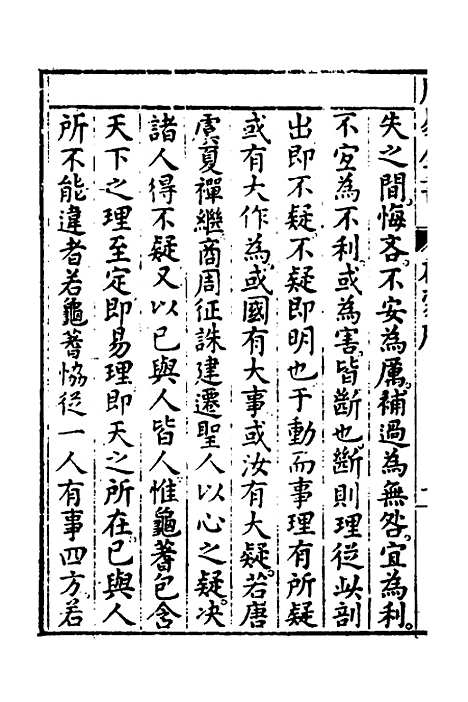 失之間。悔吝。不安為厲。補過為無咎。宜為利。
不宜為不利。或為害。皆斷也。斷則理從此剖
出即不疑。不疑即明也于動而事理有所疑
或有大作為。或國有大事或汝有大疑。若唐
虞夏禪繼商周征誅建遷聖人以心之疑。决
諸人得不疑又以已與人皆人。惟龜蓍包含
天下之理至定即易理即天之所在。已與人
所不能違者若龜蓍恊從一人有事四方。若